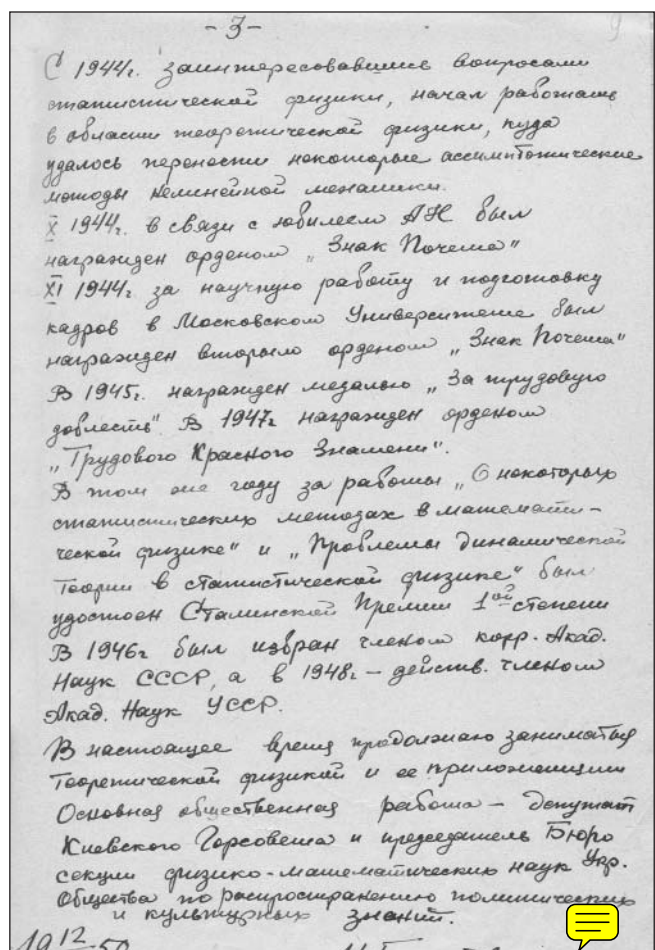 - 3 -
9
С 1944г. заинтересовавшись вопросами
статистической физики, начал работать
в области теоретической физики, куда
удалось перенести некоторые ассимптотические
методы нелинейной механики.
X 1944г. в связи с юбилеем АН был
награжден орденом „Знак Почета"
XI 1944г. за научную работу и подготовку
кадров в Московском Университете был
награжден вторым орденом „Знак Почета"
В 1945г. награжден медалью „За трудовую
доблесть". В 1947г награжден орденом
„Трудового Красного Знамени".
В том же году за работы „О некоторых
статистических методах в математи-
ческой физике" и „Проблемы динамической
теории в статистической физике" был
удостоен Сталинской Премии 1ой степени
В 1946г был избран членом корр. Акад.
Наук СССР, а в 1948г – действ. членом
Акад. Наук УССР.
В настоящее время продолжаю заниматься
теоретической физикой и ее приложениями
Основная общественная работа – депутат
Киевского Горсовета и председатель Бюро
секции физико-математических наук Укр.
Общества по распространению политических
и культурных знаний.
19 12 50